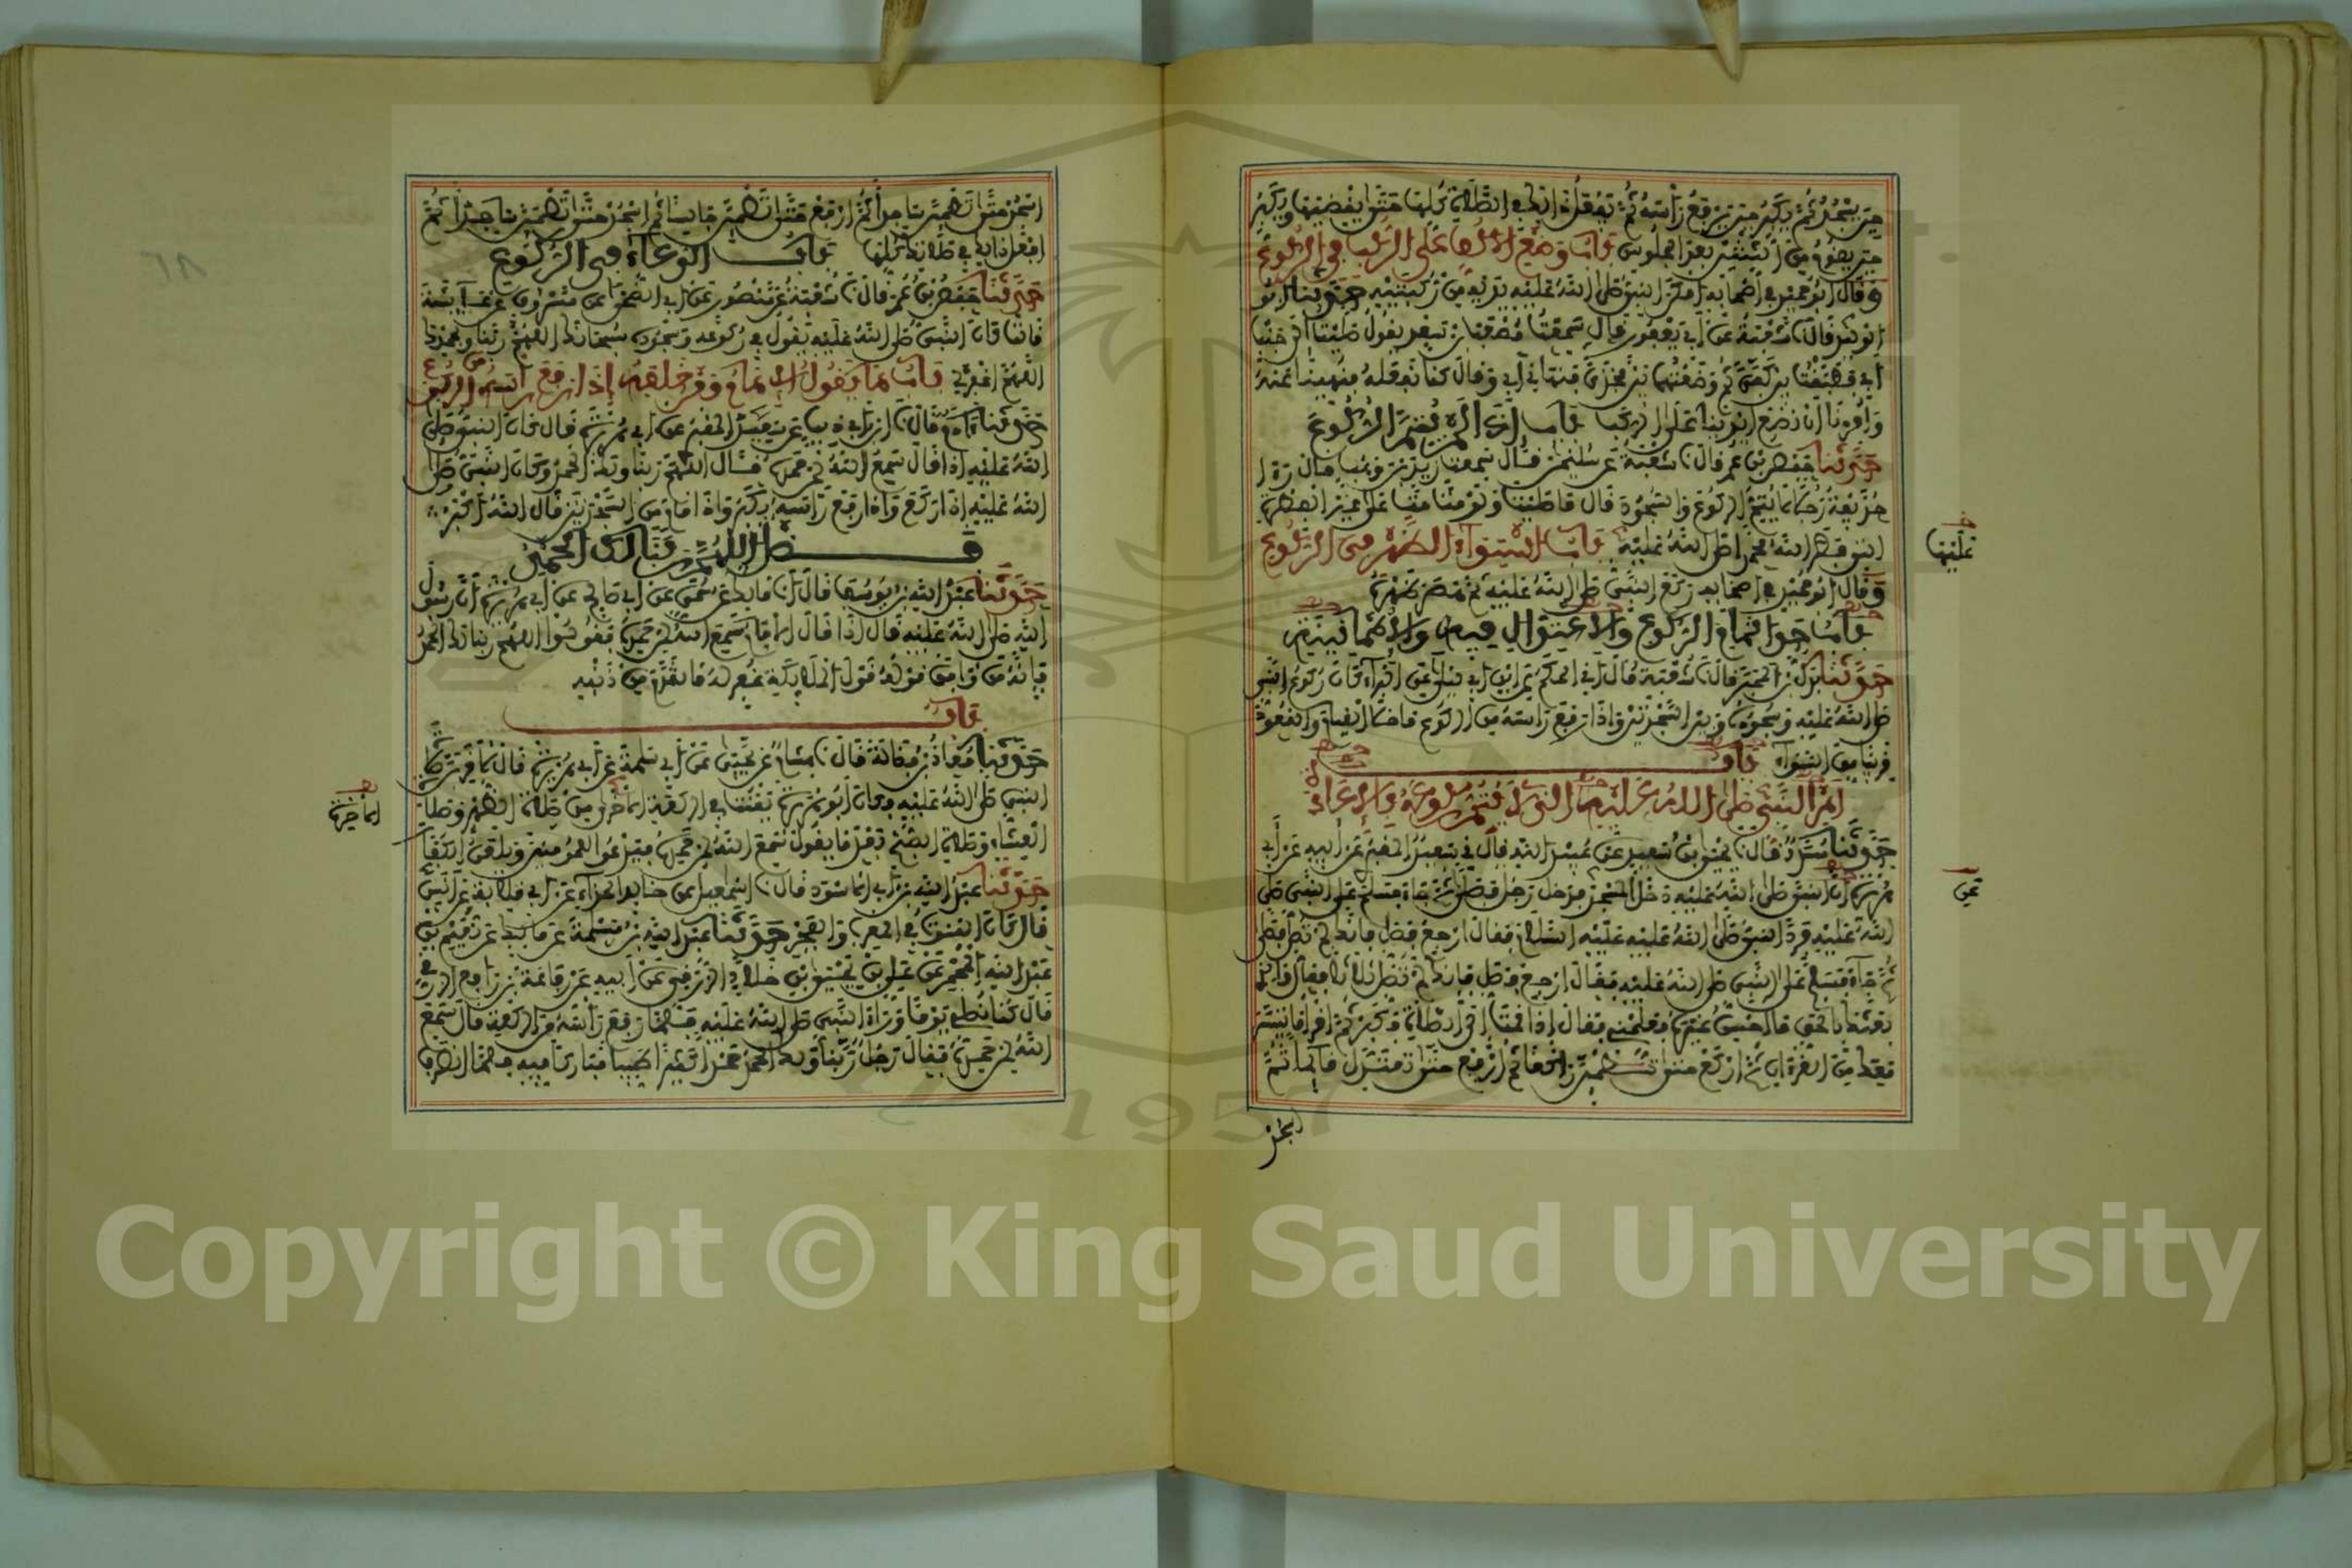 حين يسجد ثم يكبر حين يرفع رأسه ثم يفعل ذلك في الصلاة كلها حتى يقضيها ويكبر
حين يقوم من الثنتين بعد الجلوس باب وضع الأكف على الركب في الركوع
وقال أبو حميد في أصحابه أمكن النبي صلى الله عليه يديه من ركبتيه حدثنا أبو
الوليد قال نا شعبة عن أبي يعفور قال سمعت مصعب بن سعد يقول صليت إلى جنب
أبي فطبقت بين كفي ثم وضعتهما بين فخذي فنهاني أبي وقال كنا نفعله فنهينا عنه
وأمرنا أن نضع أيدينا على الركب باب إذا لم يتم الركوع
حدثنا حفص بن عمر قال نا شعبة عن سليمن قال سمعت زيد بن وهب قال رأى
حذيفة رجلا لا يتم الركوع والسجود قال ما صليت ولو مت مت على غير الفطرة
التي فطر الله محمدا صلى الله عليه باب استواء الظهر في الركوع
عليها
وقال أبو حميد في أصحابه ركع النبي صلى الله عليه ثم هصر ظهره
باب حد إتمام الركوع والاعتدال فيه والاطمأنينة
حدثنا بدل بن المحبر قال نا شعبة قال أني الحكم عن ابن أبي ليلى عن البراء كان ركوع النبي
صلى الله عليه وسجوده وبين السجدتين وإذا رفع رأسه من الركوع ما خلا القيام والقعود
قريبا من السواء باب
أمر النبي صلى الله عليه الذي لا يتم ركوعه بالإعادة
حدثنا مسدد قال نا يحيى بن سعيد عن عبيد الله قال ني سعيد المقبري عن أبيه عن أبي
هريرة أن النبي صلى الله عليه دخل المسجد فدخل رجل فصلى ثم جاء فسلم على النبي صلى
عن
الله عليه فرد النبي صلى الله عليه عليه السلام فقال ارجع فصل فإنك لم تصل فصلى
ثم جاء فسلم على النبي صلى الله عليه فقال ارجع فصل فإنك لم تصل ثلاثا فقال والذي
بعثك بالحق ما أحسن غيره فعلمني فقال إذا قمت إلى الصلاة فكبر ثم اقرأ ما تيسر
معك من القرءان ثم اركع حتى تطمئن راكعا ثم ارفع حتى تعتدل قائما ثم
اسجد
اسجد حتى تطمئن ساجدا ثم ارفع حتى تطمئن جالسا ثم اسجد حتى تطمئن ساجدا ثم
افعل ذلك في صلاتك كلها باب الدعاء في الركوع
حدثنا حفص بن عمر قال نا شعبة عن منصور عن أبي الضحى عن مسروق عن عائشة
قالت كان النبي صلى الله عليه يقول في ركوعه وسجوده سبحانك اللهم ربنا وبحمدك
اللهم اغفر لي باب ما يقول الإمام ومن خلفه إذا رفع رأسه من الركوع
حدثنا آدم قال نا ابن أبي ذيب عن سعيد المقبري عن أبي هريرة قال كان النبي صلى
الله عليه إذا قال سمع الله لمن حمده قال اللهم ربنا ولك الحمد وكان النبي صلى
الله عليه إذا ركع وإذا رفع رأسه يكبر وإذا قام من السجدتين قال الله أكبر
فضل اللهم ربنا لك الحمد
حدثنا عبد الله بن يوسف قال أنا مالك عن سمي عن أبي صالح عن أبي هريرة أن رسول
الله صلى الله عليه قال إذا قال الإمام سمع الله لمن حمده فقولوا اللهم ربنا لك الحمد
فإنه من وافق قوله قول الملايكة غفر له ما تقدم من ذنبه
باب
حدثنا معاذ بن فضالة قال نا هشام عن يحيى عن أبي سلمة عن أبي هريرة قال لأقربن صلاة
النبي صلى الله عليه وكان أبو هريرة يقنت في الركعة الأخرى من صلاة الظهر وصلاة
الآخرة
العشاء وصلاة الصبح بعد ما يقول سمع الله لمن حمده فيدعو للمومنين ويلعن الكفار
حدثنا عبد الله بن أبي الأسود قال نا إسمعيل عن خالد الحذاء عن أبي قلابة عن أنس
قال كان القنوت في المغرب والفجر حدثنا عبد الله بن مسلمة عن مالك عن نعيم بن
عبد الله المجمر عن علي بن يحيى بن خلاد الزرقي عن أبيه عن رفاعة بن رافع الزرقي
قال كنا نصلي يوما وراء النبي صلى الله عليه فلما رفع رأسه من الركعة قال سمع
الله لمن حمده فقال رجل ربنا ولك الحمد حمدا كثيرا طيبا مباركا فيه فلما انصرف